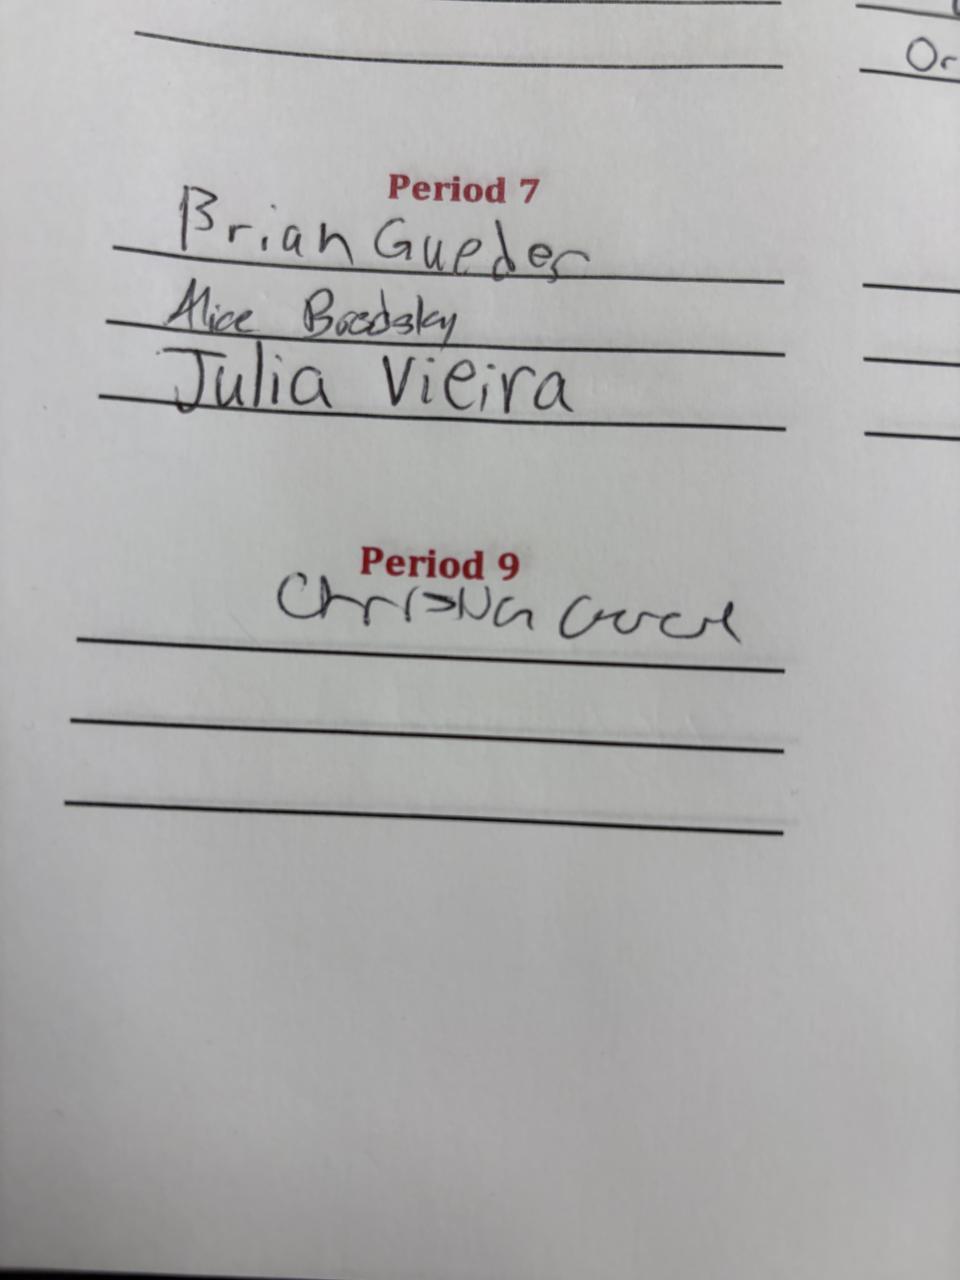 Or
Period 7
Brian Guedes
Alice Brodsky
Julia Vieira
Period 9